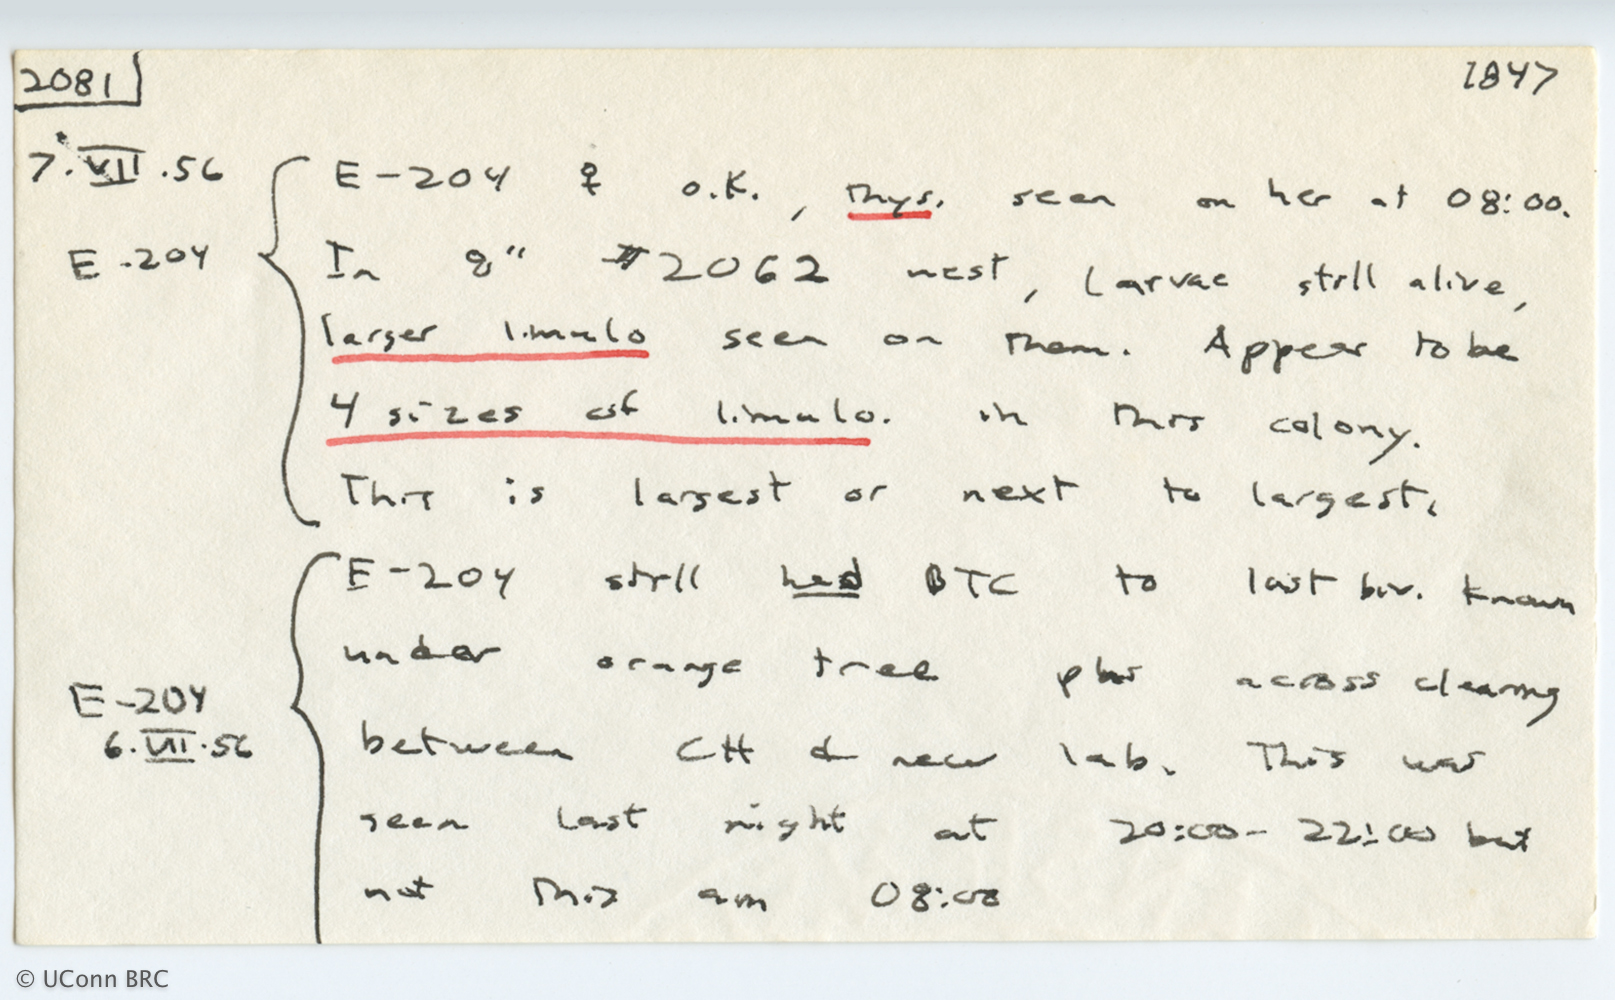 2081
1847
7.VII.56
E-204 ♀ o.K., Thys. seen on her at 08:00.
E-204
In 8" #2062 nest, Larvae still alive,
larger limulo seen on them. Appear to be
4 sizes of limulo. in this colony.
This is largest or next to largest.
E-204 still had BTC to last biv. known
under orange tree plus across clearing
E-204
6.VII.56
between CH & new lab. This was
seen last night at 20:00-22:00 but
not this am 08:00
© UConn BRC